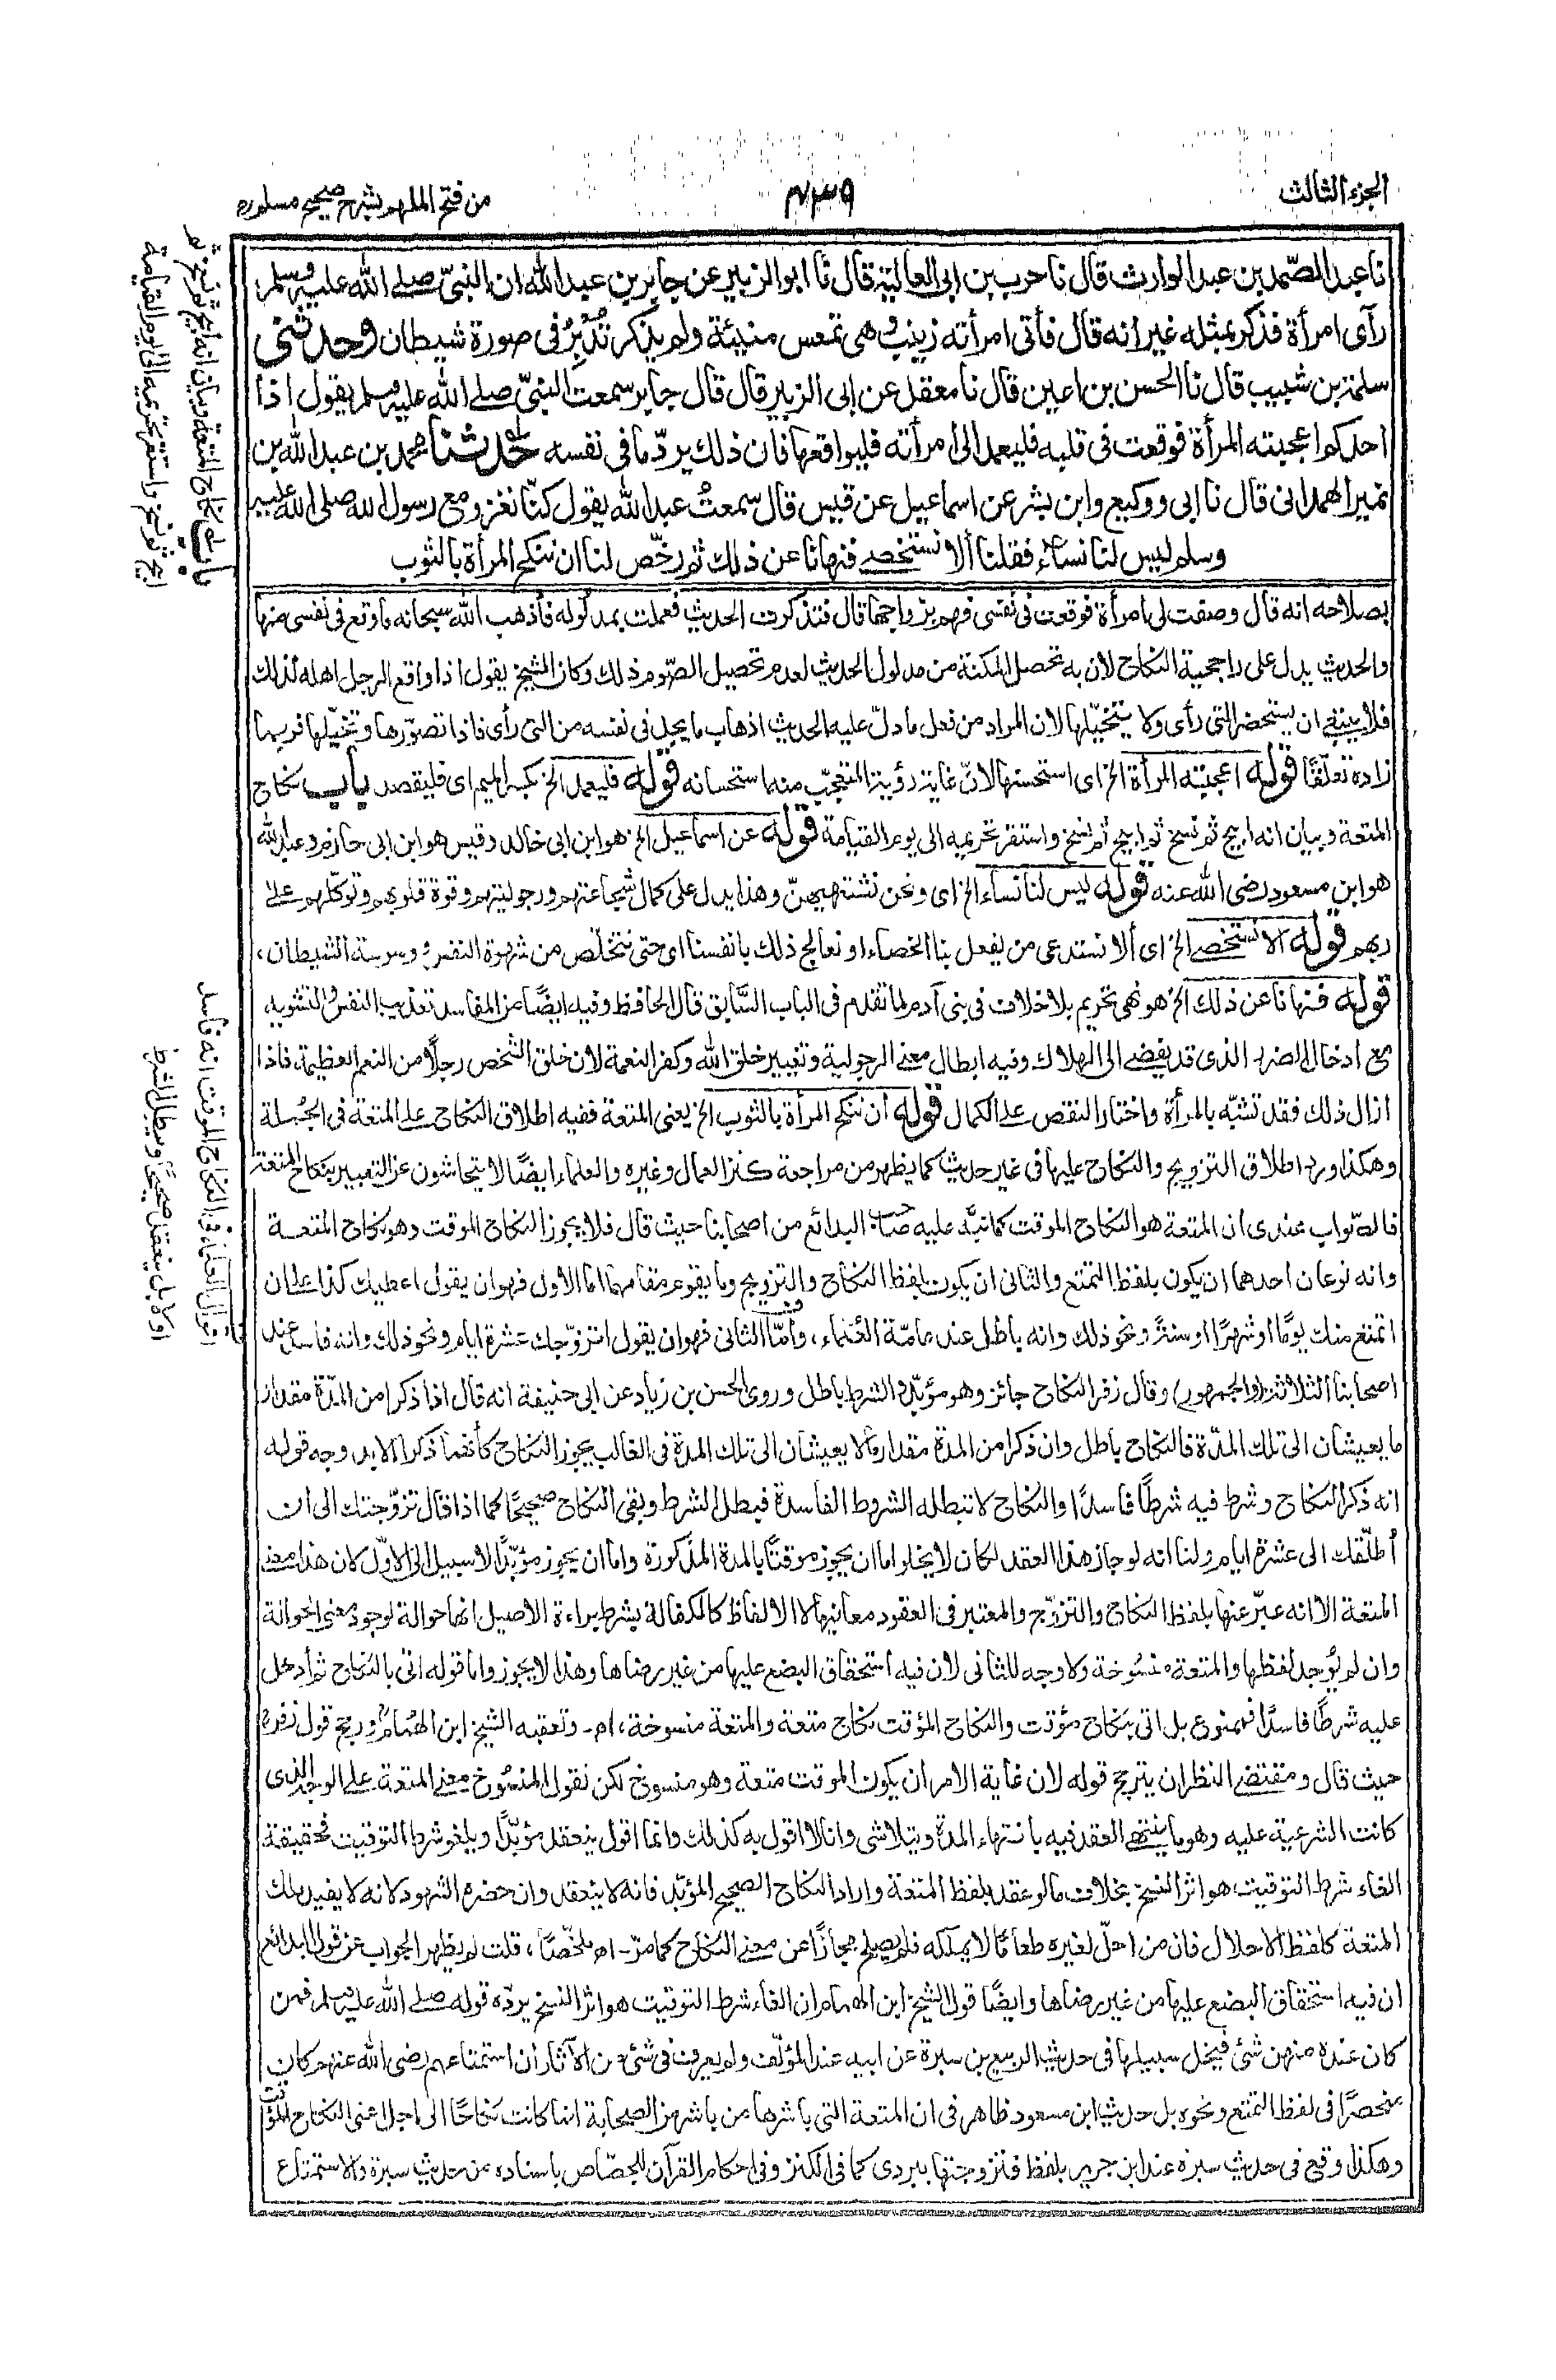 الجزء الثالث
٤٣٩
من فتح الملهم بشرح صحيح مسلم
نا عبد الصمد بن عبد الوارث قال نا حرب بن ابى العالية قال نا ابو الزبير عن جابر بن عبد الله ان النبىّ صلے الله عليه وسلم
رآى امرأة فذكر بمثله غير انه قال فأتى امرأته زينب وهى تمعس منيئة ولم يذكر تُدْبِرُ فى صورة شيطان وحدثنى
سلمة بن شبيب قال نا الحسن بن اعين قال نا معقل عن ابى الزبير قال قال جابر سمعت النبىّ صلے الله عليه وسلم يقول اذا
احدكم اعجبته المرأة فوقعت فى قلبه فليعمد الى امرأته فليواقعها فان ذلك يردّ ما فى نفسه حدثنا محمد بن عبد الله بن
نمير الهمدانى قال نا ابى ووكيع وابن بشر عن اسماعيل عن قيس قال سمعتُ عبد الله يقول كنّا نغزو مع رسول الله صلى الله عليه
وسلم ليس لنا نساء فقلنا ألا نستخصے فنهانا عن ذلك ثم رخّص لنا ان ننكح المرأة بالثوب
بصلاحه انه قال وصفت لى امرأة فوقعت فى نفسى فهم بزواجها قال فتذكرت الحديث فعملت بمدلوله فأذهب الله سبحانه ما وقع فى نفسى منها
والحديث يدل على راجحية النكاح لان به تحصل المكنة من مدلول الحديث لعدم تحصيل الصّوم ذلك وكان الشيخ يقول اذا واقع الرجل اهله لذلك
فلا ينبغى ان يستحضر التى رأى ولا يتخيّلها لان المراد من فعل ما دلّ عليه الحديث اذهاب ما يجد فى نفسه من التى رأى فاذا تصوّرها وتخيّلها فربما
زاده تعلّقا قوله اعجبته المرأة الخ اى استحسنها لانّ غاية رؤية المتعجّب منه استحسانه قوله فليعمد الخ بكسر الميم اى فليقصد باب نكاح
المتعة وبيان انه ابيح ثم نسخ ثم ابيح ثم نسخ واستقر تحريمه الى يوم القيامة قوله عن اسماعيل الخ هو ابن ابى خالد وقيس هو ابن ابى حازم وعبد الله
هو ابن مسعود رضى الله عنه قوله ليس لنا نساء الخ اى ونحن نشتهيهنّ وهذا يدل على كمال شجاعتهم ورجوليتهم وقوة قلوبهم وتوكّلهم على
ربهم قوله الا نستخصے الخ اى ألا نستدعى من يفعل بنا الخصاء او نعالج ذلك بانفسنا اى حتى نتخلّص من شهوة النفس ووسوسة الشيطان،
قوله فنهانا عن ذلك الخ هو نهى تحريم بلا خلاف فى بنى آدم لما تقدم فى الباب السّابق قال الحافظ وفيه ايضًا من المفاسد تعذيب النفس والتشويه
مع ادخال الضرر الذى قد يفضے الى الهلاك وفيه ابطال معنے الرجولية وتغيير خلق الله وكفر النعمة لان خلق الشخص رجلًا من النعم العظيمة، فاذا
ازال ذلك فقد تشبّه بالمرأة واختار النقص على الكمال قوله ان ننكح المرأة بالثوب الخ يعنى المتعة ففيه اطلاق النكاح على المتعة فى الجُملة
وهكذا ورد اطلاق التزويج والنكاح عليها فى غير حديث كما يظهر من مراجعة كنز العمال وغيره والعلماء ايضًا لا يتحاشون عن التعبير بنكاح المتعة
فالصّواب عندى ان المتعة هو النكاح الموقت كما نبّه عليه صاحب البدائع من اصحابنا حيث قال فلا يجوز النكاح الموقت وهو نكاح المتعة
وانه نوعان احدهما ان يكون بلفظ التمتع والثانى ان يكون بلفظ النكاح والتزويج وما يقوم مقامهما اما الاول فهو ان يقول اعطيك كذا على ان
اتمتع منك يومًا او شهرًا او سنةً ونحو ذلك وانه باطل عند عامّة العُلماء، وأمّا الثانى فهو ان يقول اتزوّجك عشرة ايام ونحو ذلك وانه فاسد عند
اصحابنا الثلاثة (والجمهور) وقال زفر النكاح جائز وهو مؤبّد والشرط باطل وروى الحسن بن زياد عن ابى حنيفة انه قال اذا ذكرا من المدّة مقدار
ما يعيشان الى تلك المدّة فالنكاح باطل وان ذكرا من المدة مقدار ما لا يعيشان الى تلك المدة فى الغالب يجوز النكاح كأنهما ذكرا الابد، وجه قوله
انه ذكر النكاح وشرط فيه شرطًا فاسدًا والنكاح لا تبطله الشروط الفاسدة فبطل الشرط وبقى النكاح صحيحًا كما اذا قال تزوّجتك الى ان
أطلّقك الى عشرة ايام ولنا انه لو جاز هذا العقد لكان لا يخلو اما ان يجوز موقتًا بالمدة المذكورة واما ان يجوز مؤبّدًا لا سبيل الى الاوّل لان هذا معنے
المتعة الا انه عبّر عنها بلفظ النكاح والتزوّج والمعتبر فى العقود معانيها لا الالفاظ كالكفالة بشرط براءة الاصيل انها حوالة لوجود معنى الحوالة
وان لم يُوجد لفظها والمتعة منسُوخة ولا وجه للثانى لان فيه استحقاق البضع عليها من غير رضاها وهذا لا يجوز واما قوله اتى بالنكاح ثم أدخل
عليه شرطًا فاسدًا فممنوع بل اتى بنكاح مؤقت والنكاح المؤقت نكاح متعة والمتعة منسوخة، اھ۔ وتعقبه الشيخ ابن الهُمام ورجح قول زفر
حيث قال ومقتضے النظر ان يترجح قوله لان غاية الامر ان يكون الموقت متعة وهو منسوخ لكن نقول المنسُوخ معنے المتعة على الوجه الذى
كانت الشرعية عليه وهو ما ينتهى العقد فيه بانتهاء المدة ويتلاشى وانا لا اقول به كذلك وانما اقول ينعقد مؤبّدًا ويلغو شرط التوقيت فحقيقة
الغاء شرط التوقيت هو اثر النسخ بخلاف ما لو عقد بلفظ المتعة واراد النكاح الصحيح المؤبّد فانه لا ينعقد وان حضره الشهود لانه لا يفيد ملك
المتعة كلفظ الاحلال فان من احلّ لغيره طعامًا لا يملكه فلم يصلح مجازًا عن معنے النكاح كما مرّ۔ اھ ملخّصًا، قلت لم يظهر الجواب عن قول البدائع
ان فيه استحقاق البضع عليها من غير رضاها وايضًا قول الشيخ ابن الهمام ان الغاء شرط التوقيت هو اثر النسخ يردّه قوله صلے الله عليه وسلم فمن
كان عنده منهن شئ فيخل سبيلها فى حديث الربيع بن سبرة عن ابيه عند المؤلّف ولم يعرف فى شئ من الآثار ان استمتاعهم رضى الله عنهم كان
منحصرًا فى لفظ التمتع ونحوه بل حديث ابن مسعود ظاهر فى ان المتعة التى باشرها من باشر من الصحابة انما كانت نكاحًا الى اجل اعنى النكاح المؤقت
وهكذا وقع فى حديث سبرة عند ابن جرير بلفظ فتزوجتها ببردى كما فى الكنز وفى احكام القرآن للجصّاص باسناده من حديث سبرة والاستمتاع
باب نكاح المتعة وبيان انه أبيح ثم نسخ ثم
ابيح ثم نسخ واستقر تحريمه الى يوم القيامة
اقوال العلماء فى النكاح الموقت انه فاسد
اولا بل ينعقد صحيحًا ويبطل الشرط